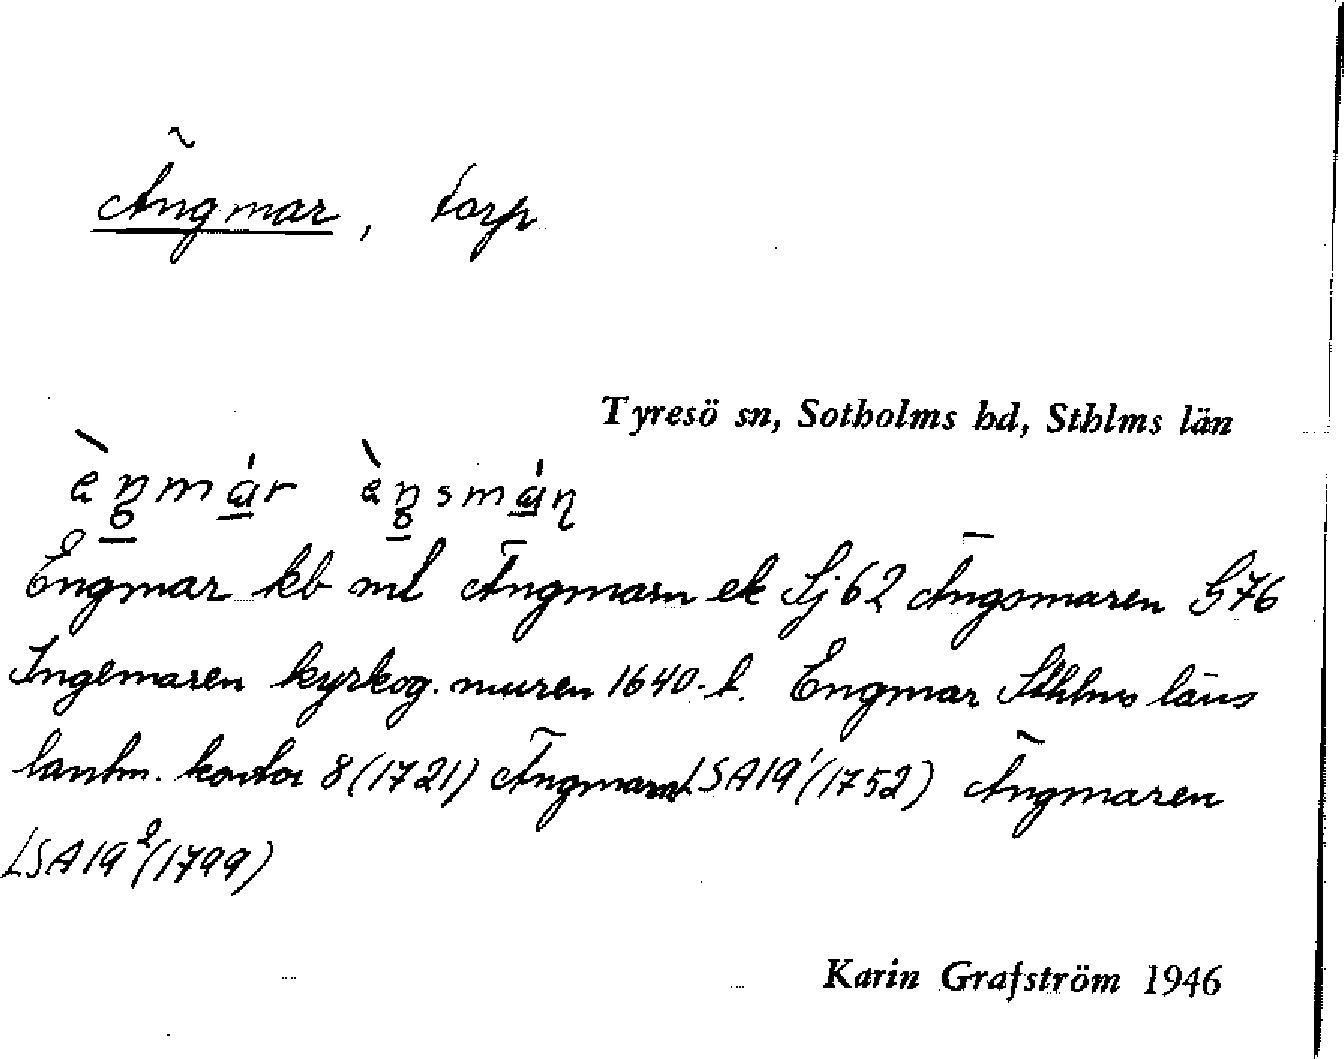 Ängmar, torp
Tyresö sn, Sotholms hd, Sthlms län
èŋmár èŋsmáɳ
Engmar kb ml Ängmarn ek Sj 62 Ängsmaren G 76
Ingemaren kyrkog. muren 1640-t. Engmar Sthlms läns
lantm. kontor 8 (1721) Ängmarn LSA 19¹ (1752) Ängmaren
LSA 19² (1799)
Karin Grafström 1946